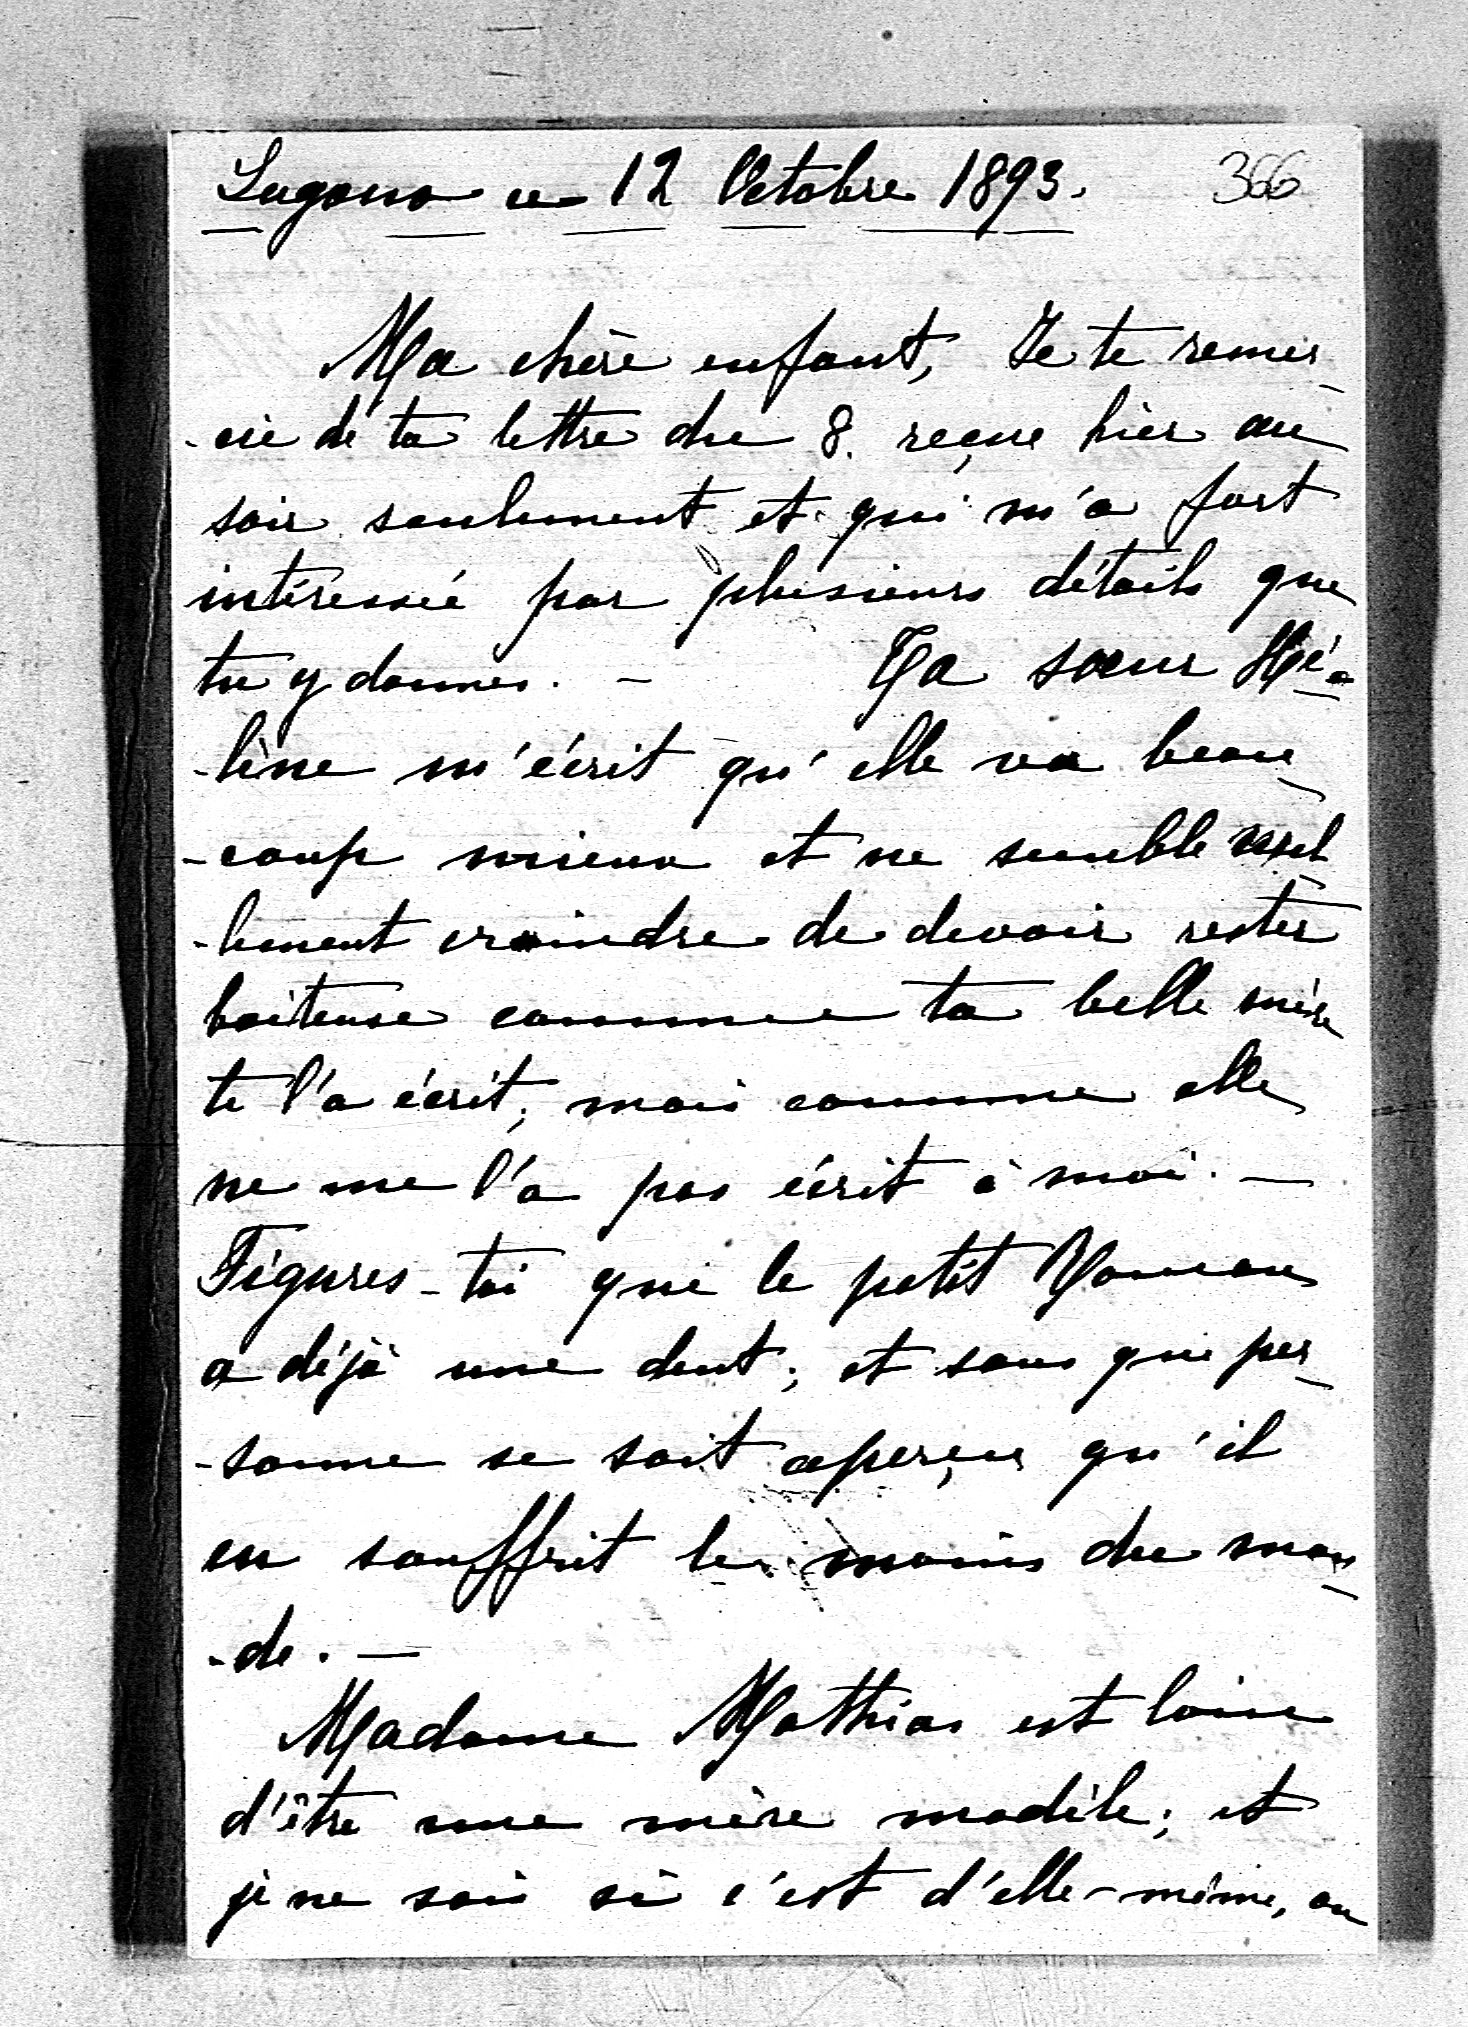 Lugano ce 12 Octobre 1893. 366
Ma chère enfant, Je te remer
-cie de ta lettre du 8. reçue hier au
soir seulement et qui m'a fort
intéressée par plusieurs détails que
tu y donnes. — Ta sœur Hé-
-lène m'écrit qu'elle va beau
-coup mieux et ne semble nul
-lement craindre de devoir rester
boiteuse comme ta belle mère
te l'a écrit; mais comme elle
ne me l'a pas écrit à moi. —
Figures-toi que le petit
a déjà une dent; et sans que per
-sonne se soit aperçu qu'il
en souffrit le moins du mon
-de. —
Madame Mathias est loin
d'être une mère modèle; et
je ne sais si c'est d'elle-même, ou